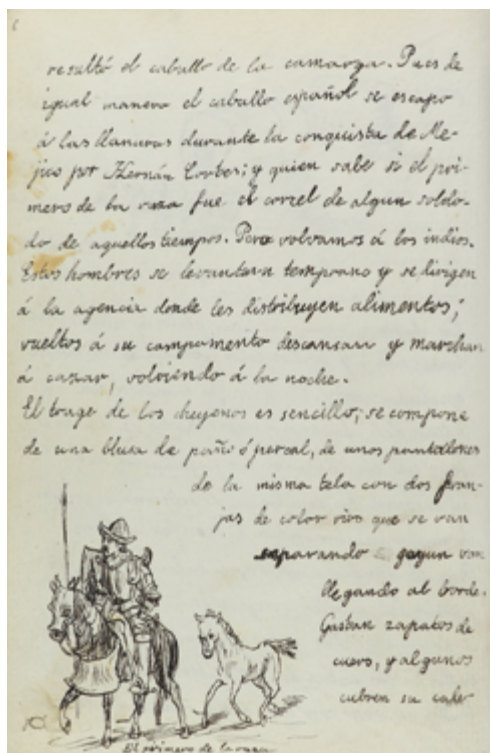 6
resultó el caballo de la camarga. Pues de
igual manera el caballo español se escapo
á las llanuras durante la conquista de Me-
jico por Hernán Cortes; y quien sabe si el pri-
mero de la raza fue el corcel de algun solda-
do de aquellos tiempos. Pero volvamos á los indios.
Estos hombres se levantan temprano y se dirigen
á la agencia donde les distribuyen alimentos;
vueltos á su campamento descansan y marchan
á cazar, volviendo á la noche.
El trage de los cheyenos es sencillo; se compone
de una blusa de paño ó percal, de unos pantalones
de la misma tela con dos fran-
jas de color vivo que se van
separando segun van
llegando al borde.
Gustan zapatos de
cuero, y algunos
cubren su cabe
El primero de la raza